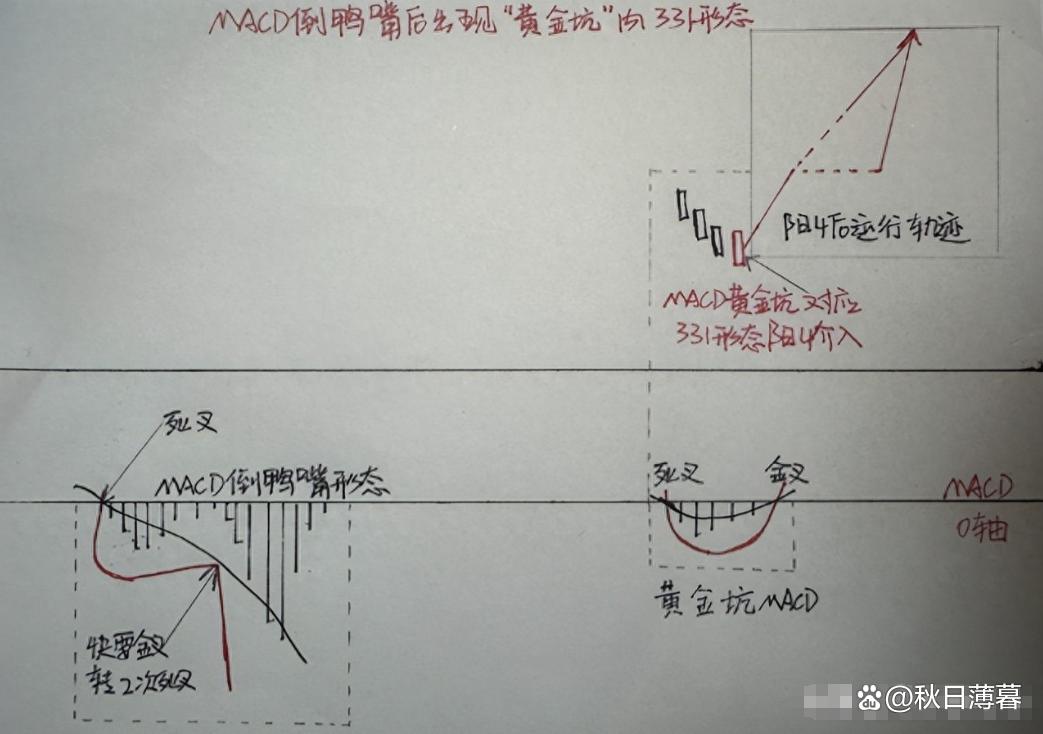 MACD倒鸭嘴后出现“黄金坑”内331形态
阳4后运行轨迹
MACD黄金坑对应
331形态阳4介入
死叉
MACD倒鸭嘴形态
死叉
金叉
MACD
0轴
黄金坑MACD
快要金叉
转2次死叉
@秋日薄暮